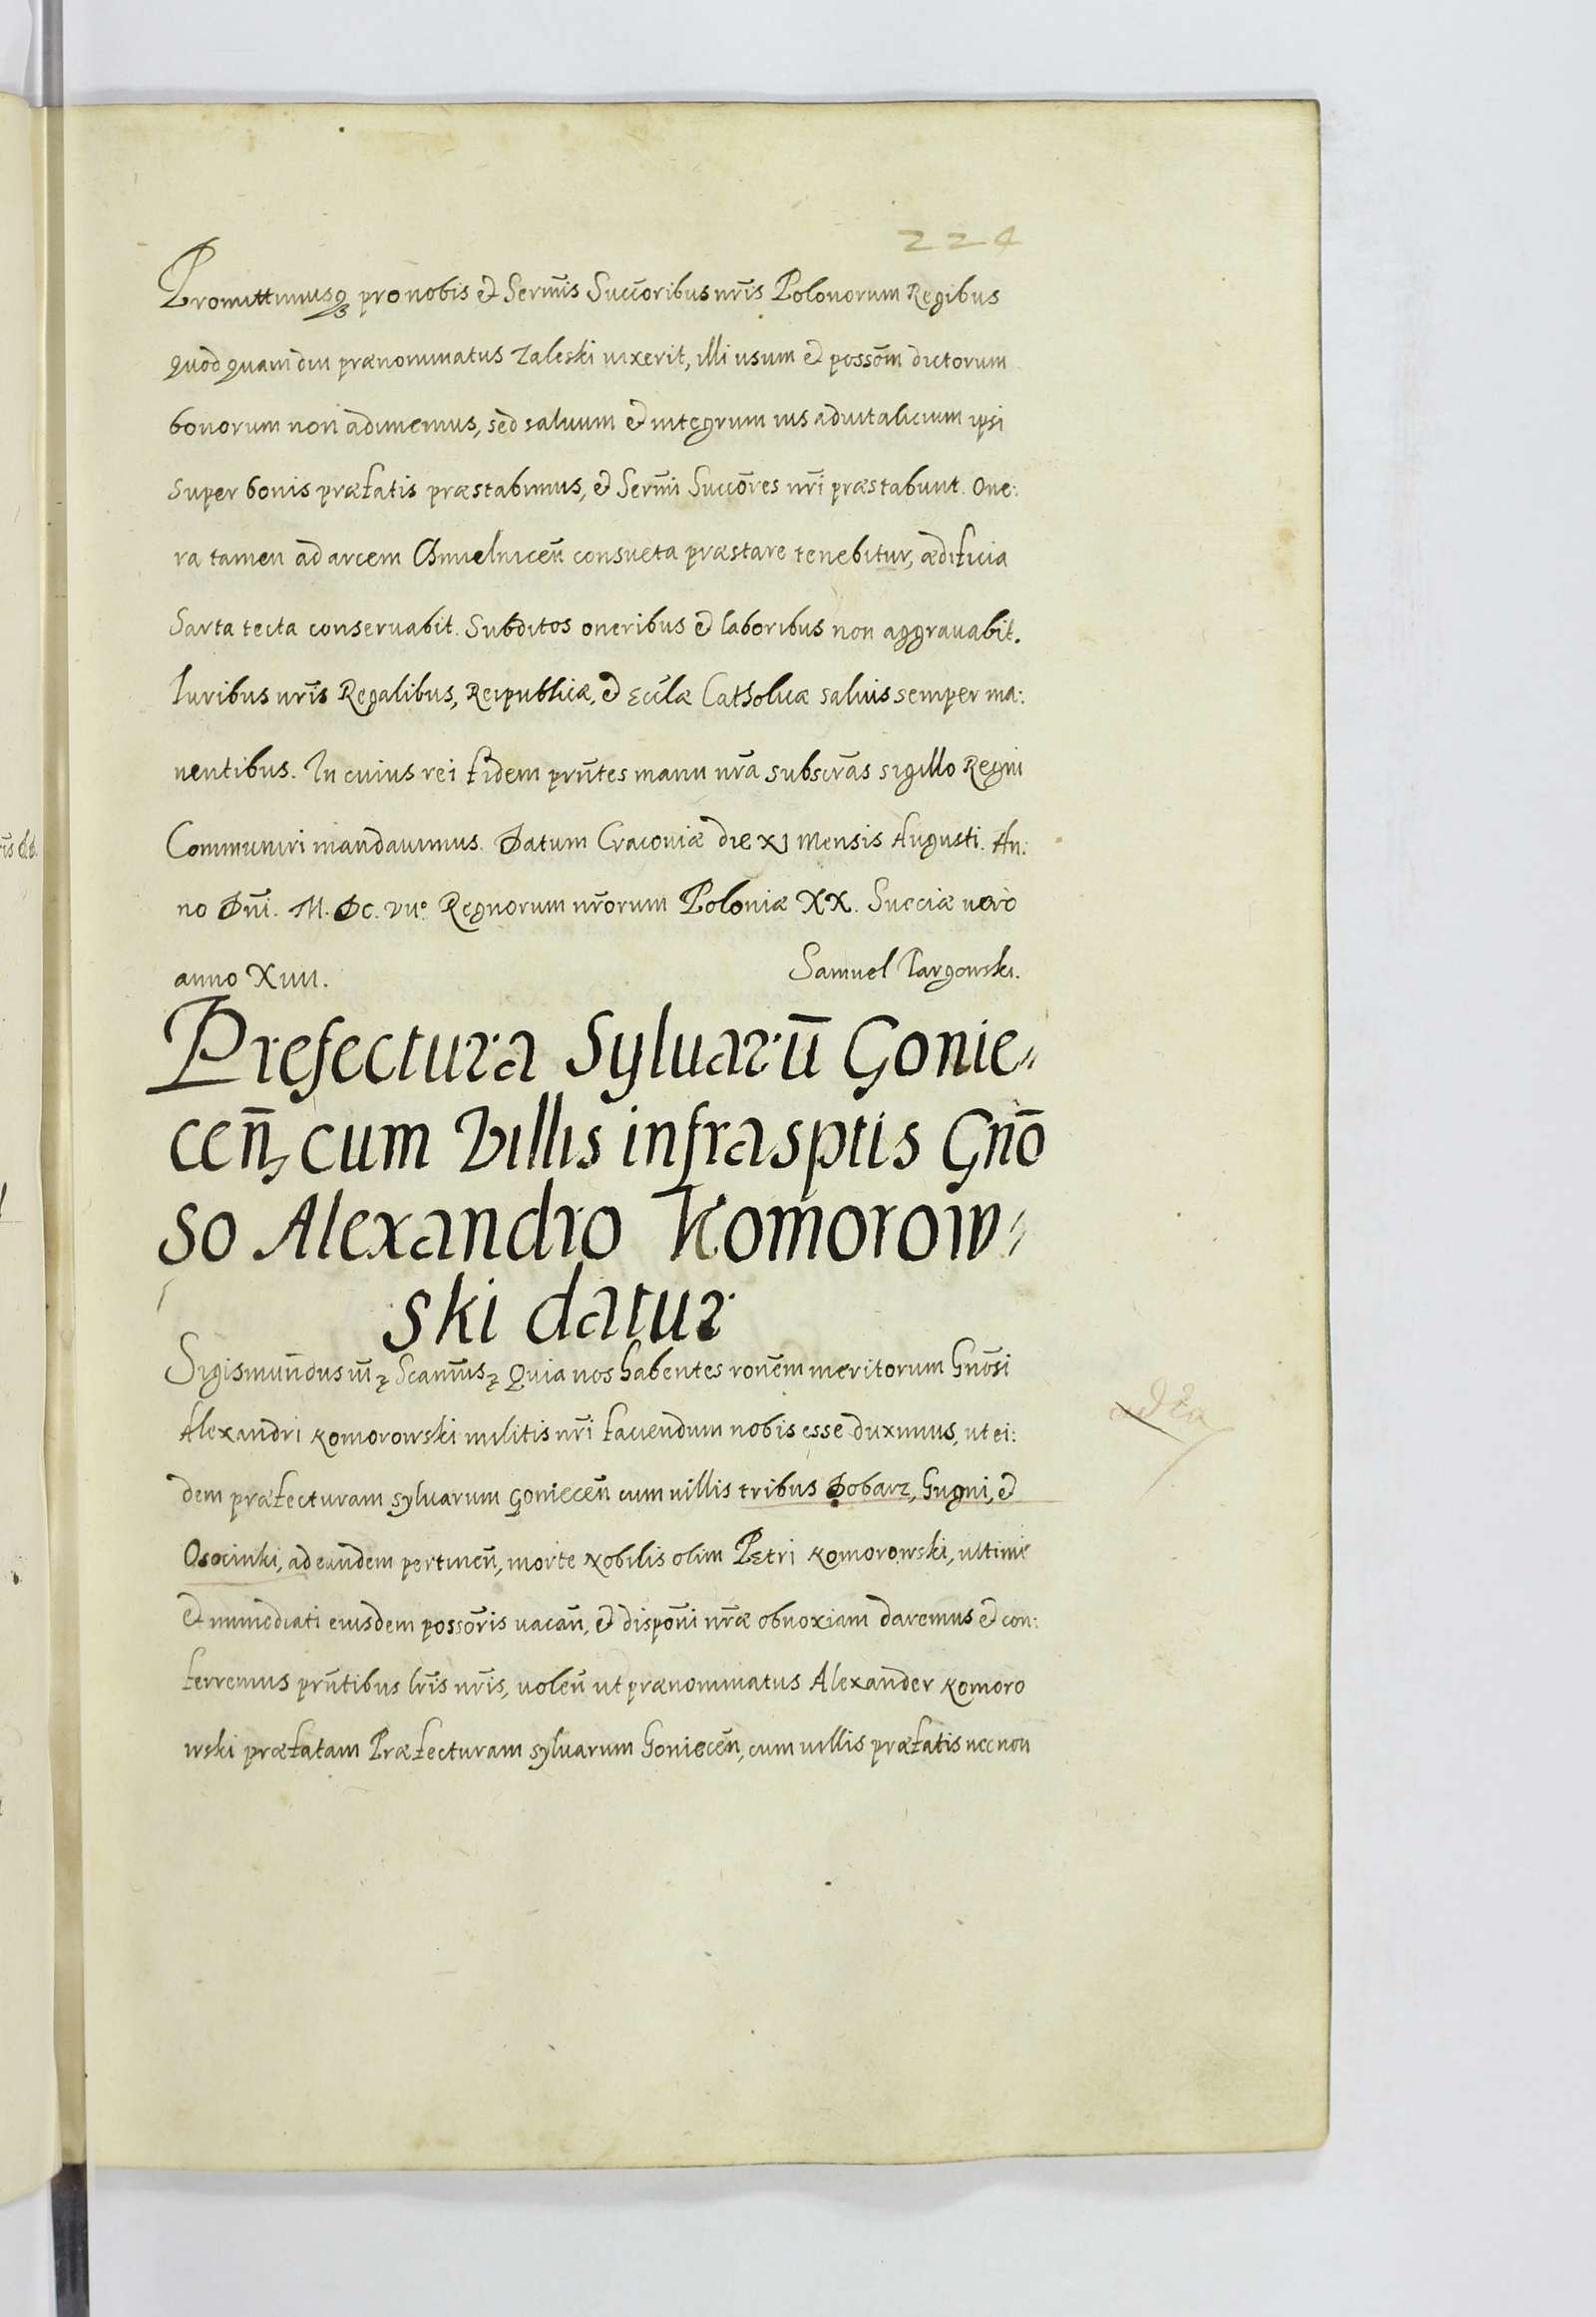 224
Promittimusq́ꝫ pro nobis et Serm̃is Succ̃oribus nr̃is Polonorum Regibus
Quod quam diu prænominatus Zaleski uixerit, illi usum et possõm dictorum
bonorum non adimemus, sed saluum et integrum ius aduitalicium ipsi
super bonis præfatis præstabimus, et Serm̃i Succõres nr̃i præstabunt. One:
ra tamen ad arcem Chmielniceñ consueta præstare tenebitur, ædificia
Sarta tecta conseruabit. Subditos oneribus et laboribus non aggrauabit.
Iuribus nr̃is Regalibus, Reipublicæ, et Eccl̃æ Catholicæ saluis semper ma:
nentibus. In cuius rei fidem prñtes manu nr̃a subscr̃as sigillo Regni
Communiri mandauimus. Datum Cracouiæ die XI mensis Augusti. An:
no Dñi. M. DC. VII° Regnorum nr̃orum Poloniæ XX. Sueciæ uero
anno XIIII.
Samuel Targowski.
Prefectura Syluarũ Gonie,,
ceñ, cum Villis infrasptis Gño
so Alexandro Komorow,,
ski datur
Sigismundus III ꝛ Scam̃usꝛ Quia nos habentes ronẽm meritorum Gnõsi
Alexandri Komorowski militis nr̃i faciendum nobis esse duximus, ut ei:
dem præfecturam syluarum Gonieceñ cum uillis tribus Dobarz, Gugni, et
Osocinki, ad eandem pertineñ, morte Nobilis olim Petri Komorowski, ultimi
et immediati eiusdem possõris uacañ, et dispõni nr̃æ obnoxiam daremus et con:
ferremus prñtibus lr̃is nr̃is, uoleñ ut prænominatus Alexander Komoro
wski præfatam Præfecturam syluarum Goniecẽn, cum uillis præfatis nec non